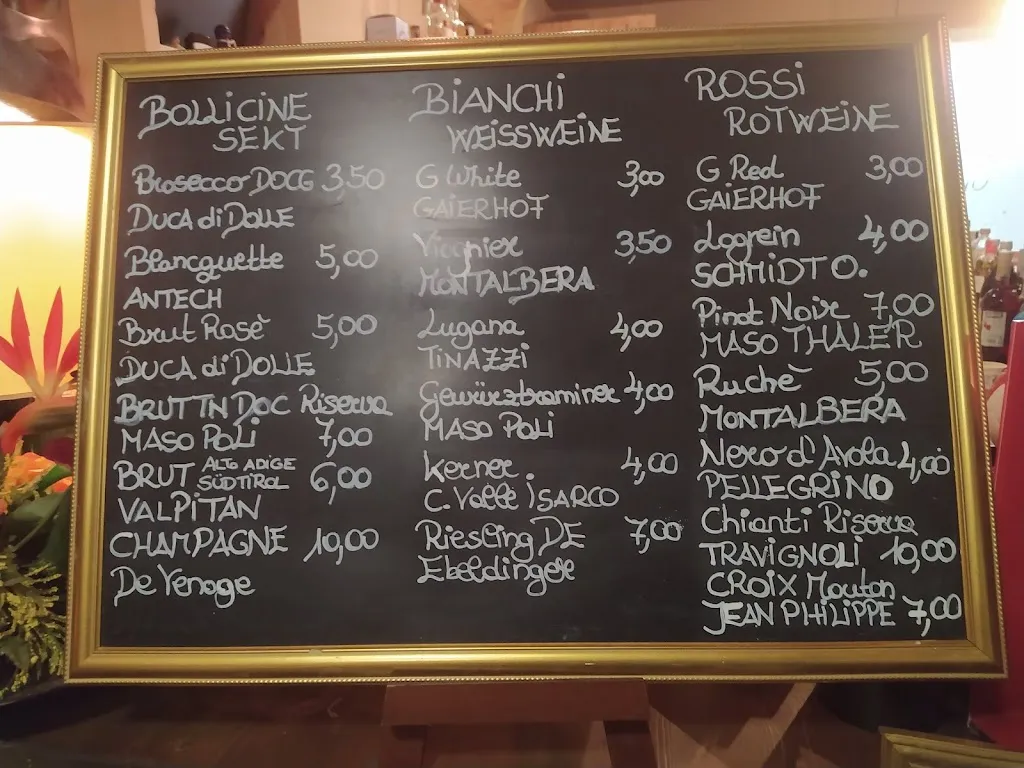 BOLLICINE
SEKT
Prosecco DOCG 3,50
DUCA di DOLLE
Blancquette 5,00
ANTECH
Brut Rosè 5,00
DUCA di DOLLE
BRUT TN DOC Riserva
MASO POLI 7,00
BRUT ALTO ADIGE SÜDTIROL 6,00
VALPITAN
CHAMPAGNE 10,00
De Venoge
BIANCHI
WEISSWEINE
G White 3,00
GAIERHOF
Viognier 3,50
MONTALBERA
Lugana 4,00
TINAZZI
Gewürztraminer 4,00
MASO POLI
Kerner 4,00
C. Valle ISARCO
Riesling DE 7,00
Ebeldinger
ROSSI
ROTWEINE
G Red 3,00
GAIERHOF
Lagrein 4,00
SCHMIDT O.
Pinot Noir 7,00
MASO THALER
Ruchè 5,00
MONTALBERA
Nero d'Avola 4,00
PELLEGRINO
Chianti Riserva
TRAVIGNOLI 10,00
CROIX Mouton
JEAN PHILIPPE 7,00